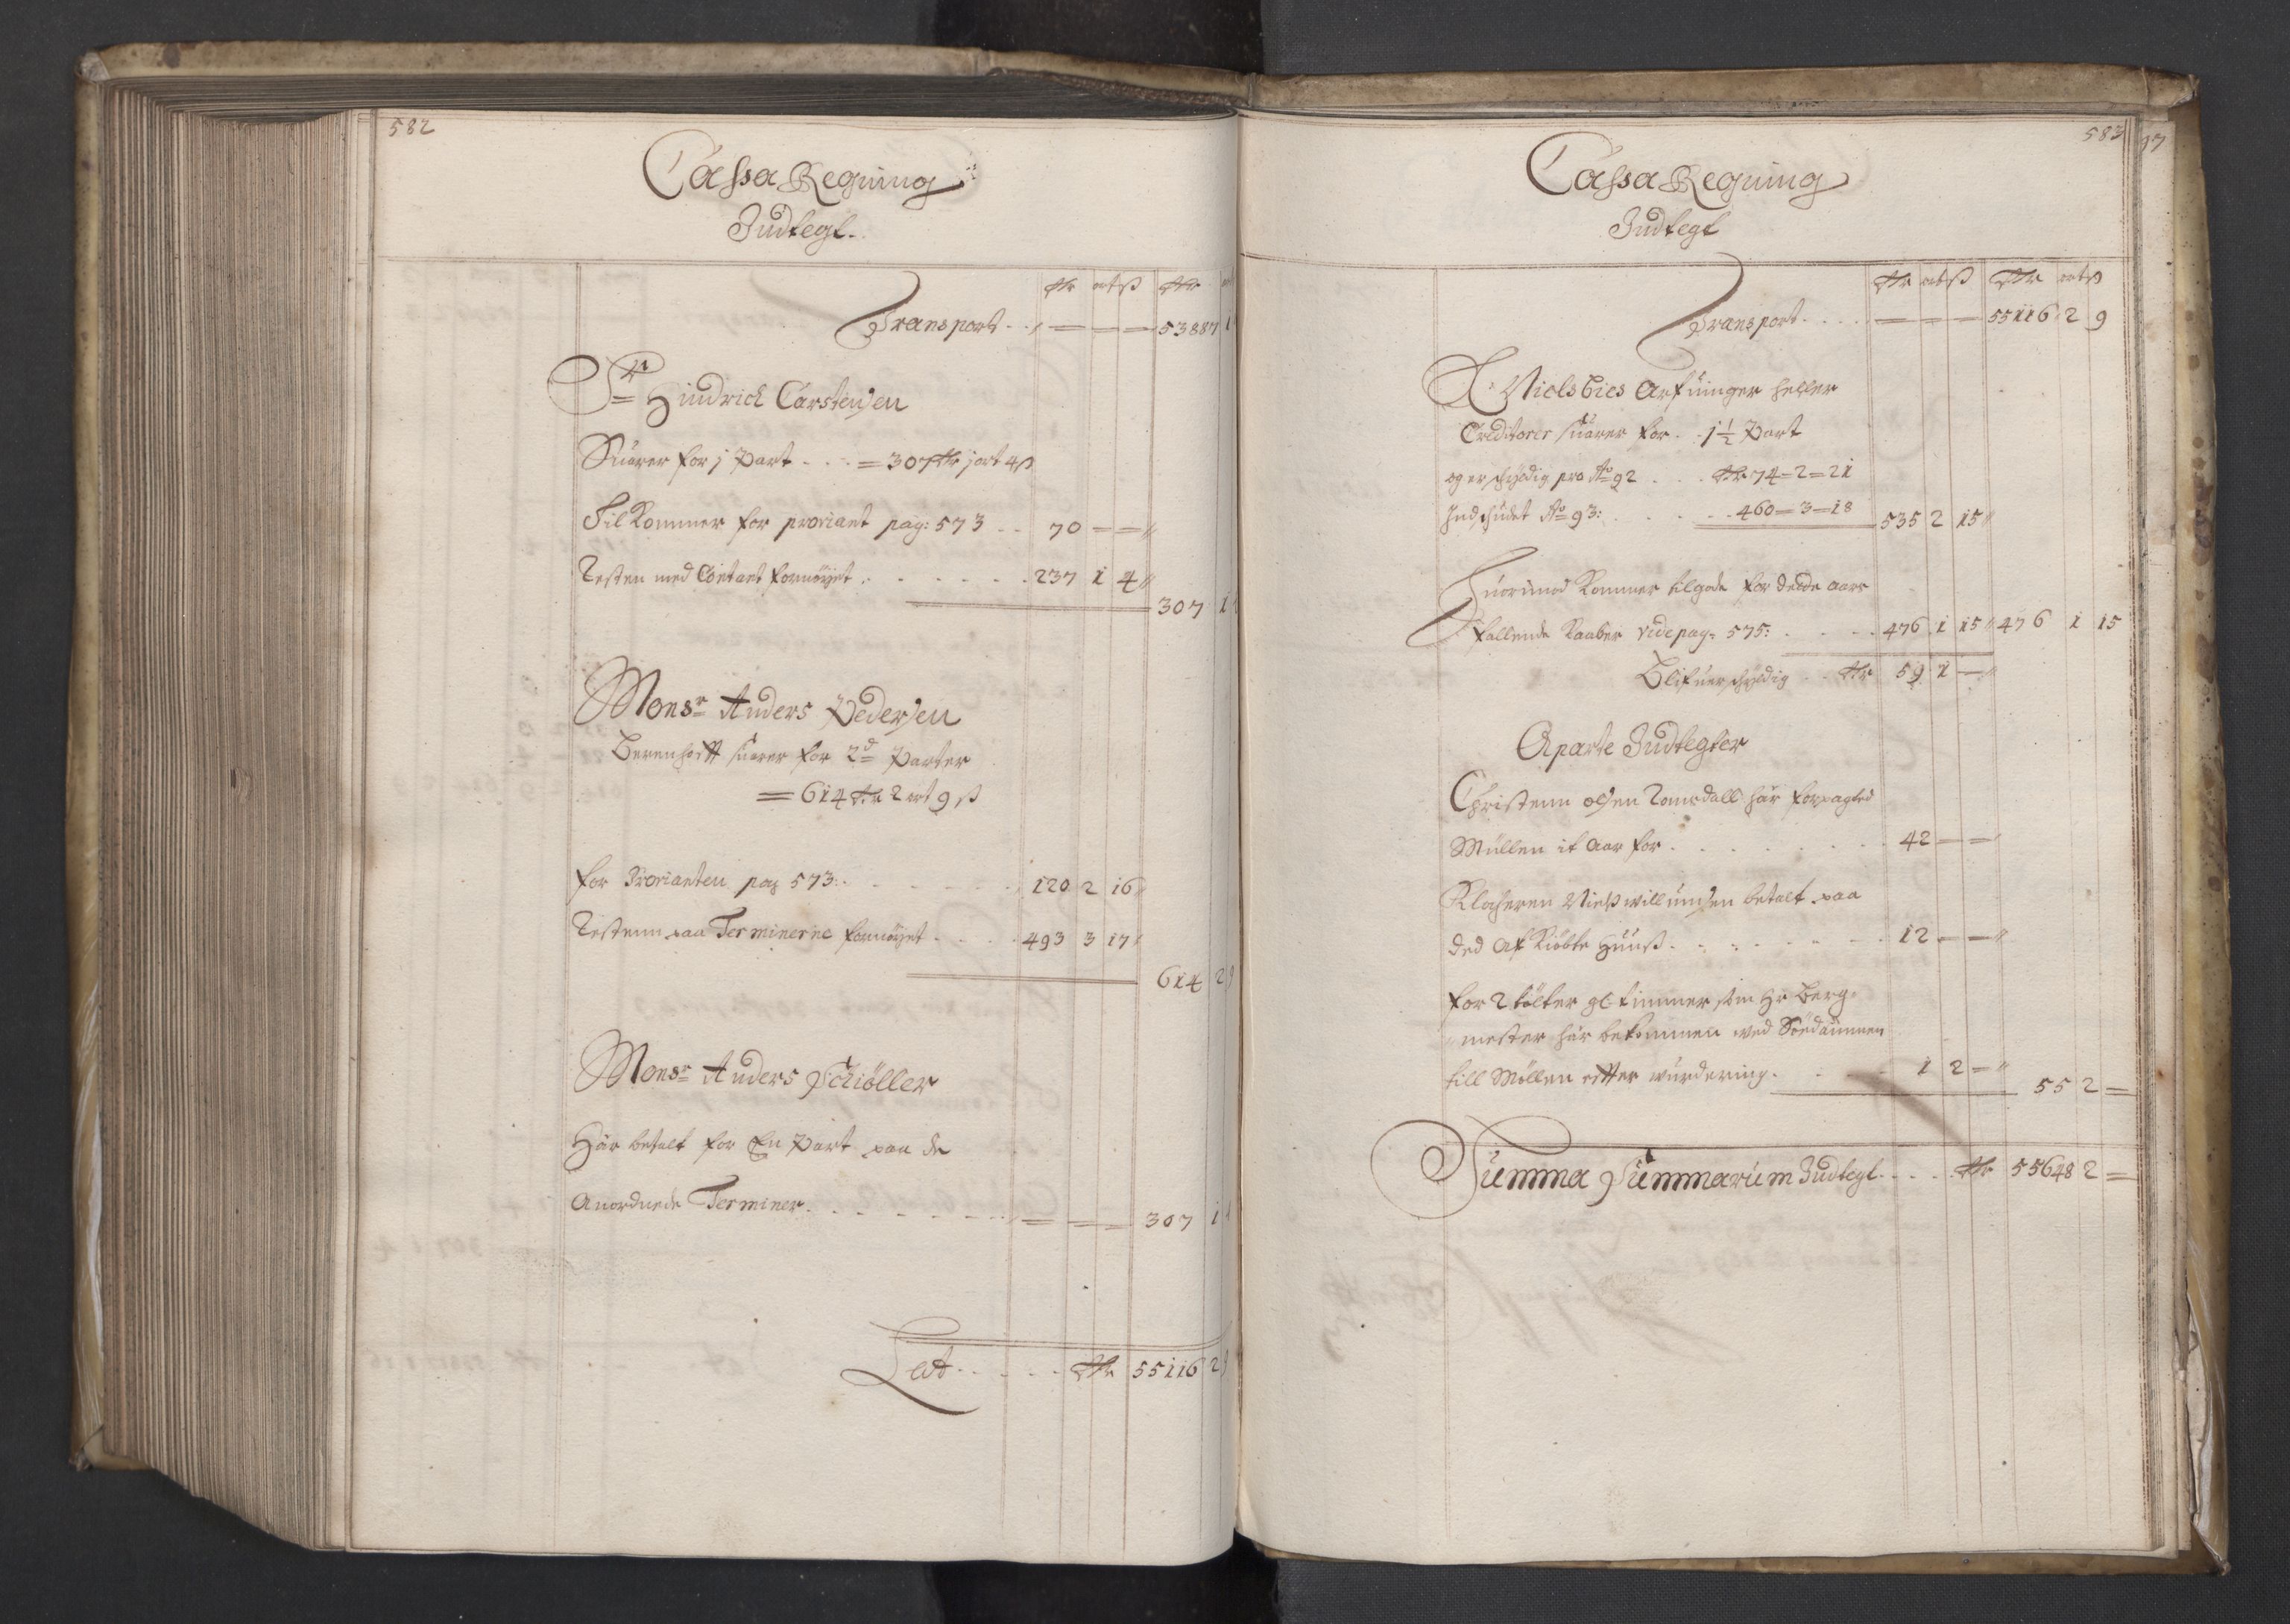 582
Cassa Regning
Indtegt.
Rdr ort ß Rdr
Transport . . — — — 53887 1
Sr Hindrich Carstensen
Suarer for j Part . . . = 307 Rdr j ort 4 ß
Til Kommer for proviant pag: 573 . . 70 — —
Resten med Contant fornøyet . . . . . . 237 1 4
307 1
Monsr Anders Pedersen
Berenhoft suarer for 2de Parter
= 614 Rdr 2 ort 9 ß
for Provianten pag 573: . . . . . 120 2 16
Restenn paa Terminerne fornøyet . . . . 493 3 17
614 2 9
Monsr Anders Schiøller
Har betalt for En Part paa de
Anordnede Terminer . . . . . . . — — — 307 1
Lat . . . . . Rdr 55116 2 9
583
97
Cassa Regning
Indtegt
Rdr ort ß Rdr ort ß
Transport . . . . — — — 55116 2 9
Sl: Niels Bies Arfuinger heller
Creditorer suarer for . . 1½ Part
og er schyldig pro Ao 92 . . . Rdr 74=2=21
Indschudet Ao 93: . . . . . 460=3=18 535 2 15
Huorimod Kommer tilgode for dedde aars
fallende Kaaber vide pag: 575: . . . . 476 1 15 476 1 15
Blifuer schyldig . . Rdr 59 1 —
Aparte Indtegter
Christenn olsen Romsdall har forpagted
Müllen it Aar for . . . . . . . . 42 — —
Niels willumsen betalt paa
ded af Kiøbte Huuß . . . . . . . . 12 — —
for 2 tølter gl timmer som Hr Berg-
mester har bekommen wed
till Møllen effter wurdering . . . . . 1 2 —
55 2 =
Summa Summarum Indtegt . . . . Rdr 55648 2 =